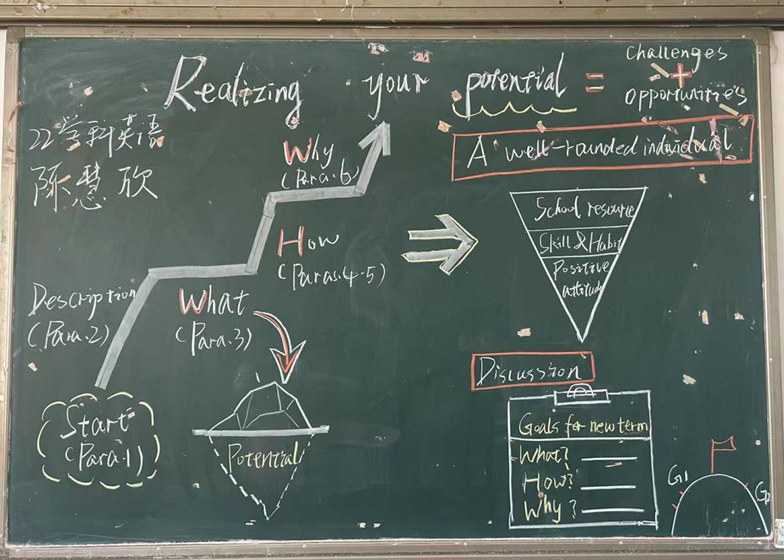 Realizing your potential =
challenges
+
opportunities
22学科英语
陈慧欣
A well-rounded individual
Why
(Para.6)
How
(Paras.4-5)
What
(Para.3)
Description
(Para.2)
Start
(Para.1)
Potential
School resource
Skill & Habit
Positive
attitude
Discussion
Goals for new term
What?
How?
Why?
G1